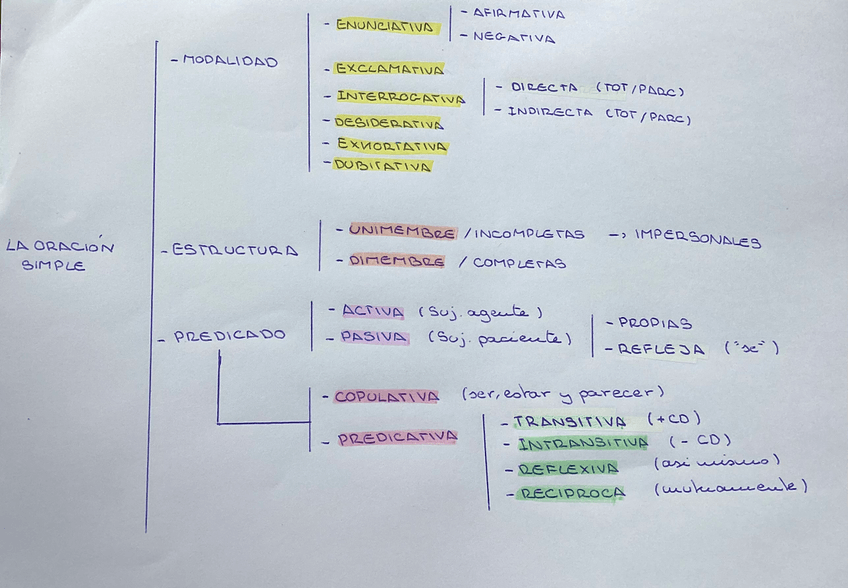 - MODALIDAD
- ENUNCIATIVA
- AFIRMATIVA
- NEGATIVA
- EXCLAMATIVA
- INTERROGATIVA
- DIRECTA (TOT/PARC)
- INDIRECTA (TOT/PARC)
- DESIDERATIVA
- EXHORTATIVA
- DUBITATIVA
LA ORACIÓN
SIMPLE
- ESTRUCTURA
- UNIMEMBRE / INCOMPLETAS -> IMPERSONALES
- DIMEMBRE / COMPLETAS
- PREDICADO
- ACTIVA (Suj. agente)
- PASIVA (Suj. paciente)
- PROPIAS
- REFLEJA ("se")
- COPULATIVA (ser, estar y parecer)
- PREDICATIVA
- TRANSITIVA (+CD)
- INTRANSITIVA (- CD)
- REFLEXIVA (así mismo)
- RECIPROCA (mutuamente)